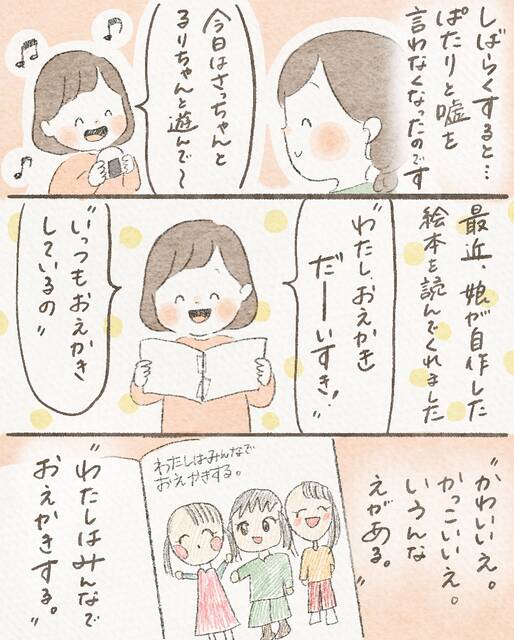 しばらくすると…
ぱたりと嘘を
言わなくなったのです
今日はさっちゃんと
るりちゃんと遊んで〜
最近、娘が自作した
絵本を読んでくれました
"わたし、おえかき
だーいすき！"
"いつもおえかき
しているの"
"かわいいえ。
かっこいいえ。
いろんな
えがある。"
わたしはみんなで
おえかきする。
"わたしはみんなで
おえかきする。"